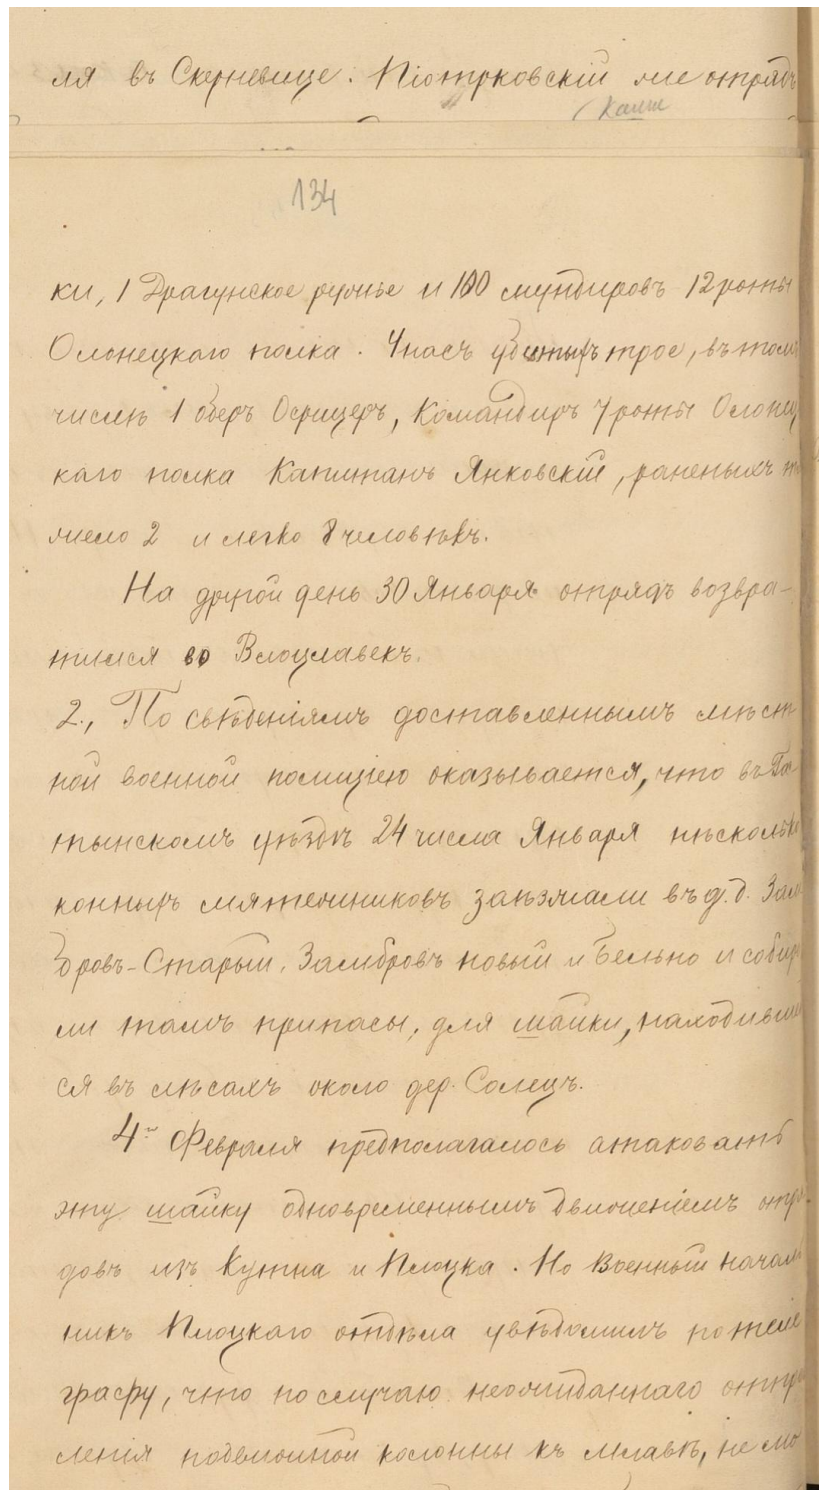 ля въ Скерневице. Піотрковскій же отрядъ
134
ки, 1 Драгунское ружье и 100 мундировъ 12 роты
Олонецкаго полка. Унасъ убитыхъ трое, въ томъ
числѣ 1 оберъ Офицеръ, Командиръ 7 роты Олонец
каго полка Капитанъ Янковскій, раненыхъ тя
жело 2 и легко 8 человѣкъ.
На другой день 30 Января отрядъ возвра-
тился во Влоцлавекъ.
2., По свѣдѣніямъ доставленнымъ мѣст
ной военной полиціею оказывается, что въ Го
тынскомъ уѣздѣ 24 числа Января нѣсколько
конныхъ мятежниковъ заѣзжали въ д.д. Зам
бровъ-Старый, Замбровъ новый и Бельно и собира
ли тамъ припасы, для шайки, находивше
ся въ лѣсахъ около дер. Солецъ.
4го Февраля предполагалось атаковать
эту шайку одновременнымъ движеніемъ отря
довъ изъ Кутна и Плоцка. Но Военный началь
никъ Плоцкаго отдѣла увѣдомилъ по теле
графу, что по случаю неожиданнаго отпра
вленія подвижной колонны къ Млавѣ, не мо